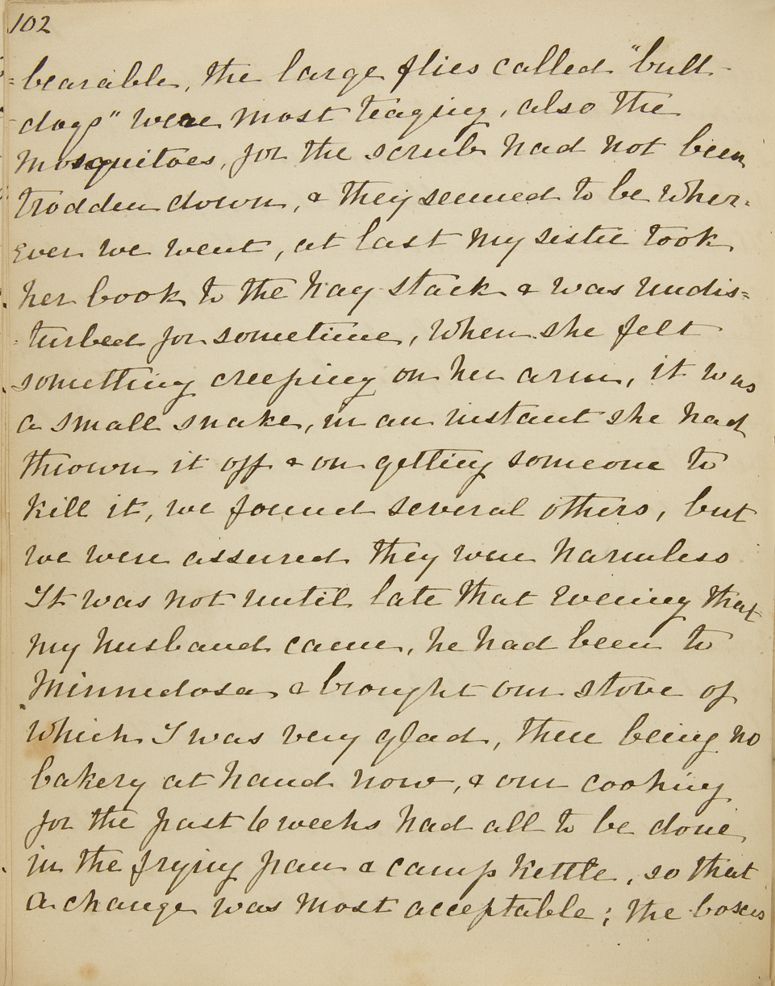 102
=bearable, the large flies called "bull-
dogs" were most teaging, also the
mosquitoes, for the scrub had not been
trodden down, & they seemed to be wher-
ever we went, at last my sister took
her book to the hay stack & was undis=
=turbed for sometime, when she felt
something creeping on her arm, it was
a small snake, in an instant she had
thrown it off & on getting someone to
kill it, we found several others, but
we were assured they were harmless
It was not until late that evening that
my husband came, he had been to
Minnedosa & brought our stove of
which I was very glad, there being no
bakery at hand now, & our cooking
for the past 6 weeks had all to be done
in the frying pan & camp kettle, so that
a change was most acceptable; the boxes